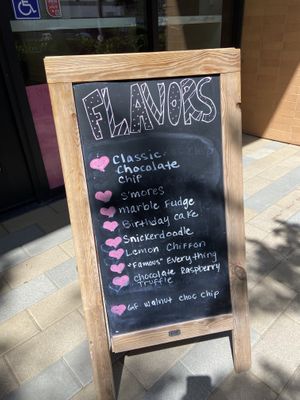 FLAVORS
Classic
Chocolate
Chip
S'mores
Marble Fudge
Birthday cake
Snickerdoodle
Lemon Chiffon
"Famous" Everything
chocolate Raspberry
Truffle
GF Walnut Choc Chip